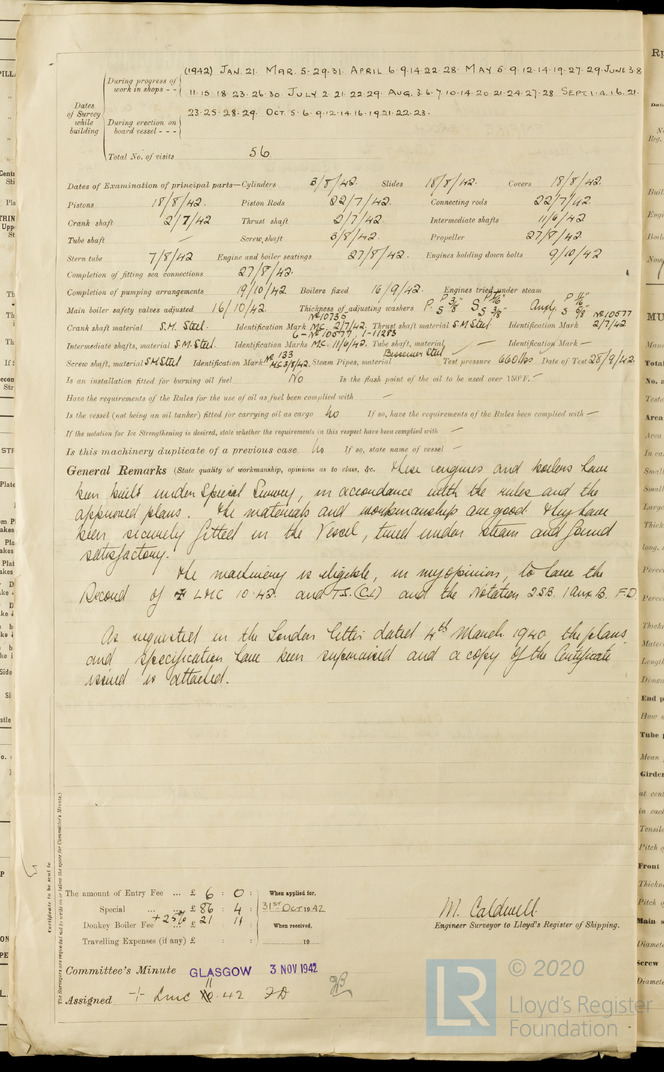 (1942) JAN. 21. MAR. 5. 29. 31. APRIL 6. 9. 14. 22. 28. MAY 5. 9. 12. 14. 19. 27. 29. JUNE 3. 8
During progress of work in shops - -
11. 15. 18. 23. 26. 30. JULY 2. 21. 22. 29. AUG. 3. 6. 7. 10. 14. 20. 21. 24. 27. 28. SEPT. 1. 4. 16. 21.
Dates of Survey while building
23. 25. 28. 29. OCT. 5. 6. 9. 12. 14. 16. 19. 21. 22. 23.
During erection on board vessel - - -
Total No. of visits 56
Dates of Examination of principal parts—Cylinders 3/8/42. Slides 18/8/42. Covers 18/8/42.
Pistons 18/8/42. Piston Rods 22/7/42. Connecting rods 22/7/42.
Crank shaft 2/7/42 Thrust shaft 2/7/42. Intermediate shafts 11/6/42
Tube shaft — Screw shaft 3/8/42 Propeller 27/8/42.
Stern tube 7/8/42 Engine and boiler seatings 27/8/42. Engines holding down bolts 9/10/42
Completion of fitting sea connections 27/8/42.
Completion of pumping arrangements 19/10/42 Boilers fixed 16/9/42. Engines tried under steam
Main boiler safety valves adjusted 16/10/42. Thickness of adjusting washers
Crank shaft material S.M. Steel. Identification Mark No 10735 MC. 2/7/42. Thrust shaft material S.M. Steel. Identification Mark No 10577 2/7/42
Intermediate shafts, material S.M. Steel. Identification Marks 6-No 10577, 1-11283 MC. 11/6/42. Tube shaft, material — Identification Mark —
Screw shaft, material S.M Steel Identification Mark No 133 MC 3/8/42. Steam Pipes, material Bessemer Steel Test pressure 660 lbs Date of Test 28/9/42.
Is an installation fitted for burning oil fuel No Is the flash point of the oil to be used over 150°F. —
Have the requirements of the Rules for the use of oil as fuel been complied with —
Is the vessel (not being an oil tanker) fitted for carrying oil as cargo No If so, have the requirements of the Rules been complied with —
If the notation for Ice Strengthening is desired, state whether the requirements in this respect have been complied with —
Is this machinery duplicate of a previous case No If so, state name of vessel —
General Remarks (State quality of workmanship, opinions as to class, &c. These engines and boilers have
been built under Special Survey, in accordance with the rules and the
approved plans. The materials and workmanship are good. They have
been securely fitted in the Vessel, tried under steam and found
satisfactory.
The machinery is eligible, in my opinion, to have the
Record of LMC 10.42. and T.S. (CL) and the Notation 2SB. 1 Aux B. F.D.
As requested in the London letter dated 4th March 1940, the plans
and specification have been supervised and a copy of the Certificate
issued is attached.
Certificate to be sent to
The amount of Entry Fee ... £ 6 : 0 : When applied for.
Special ... £ 86 : 4 : 31ST OCT 1942
Donkey Boiler Fee +25% £ 21 : 11 When received.
Travelling Expenses (if any) £ : : 19
M. Caldwell.
Engineer Surveyor to Lloyd's Register of Shipping.
Committee's Minute GLASGOW 3 NOV 1942
Assigned + LMC 11.42 FD
© 2020
LR
Lloyd's Register
Foundation